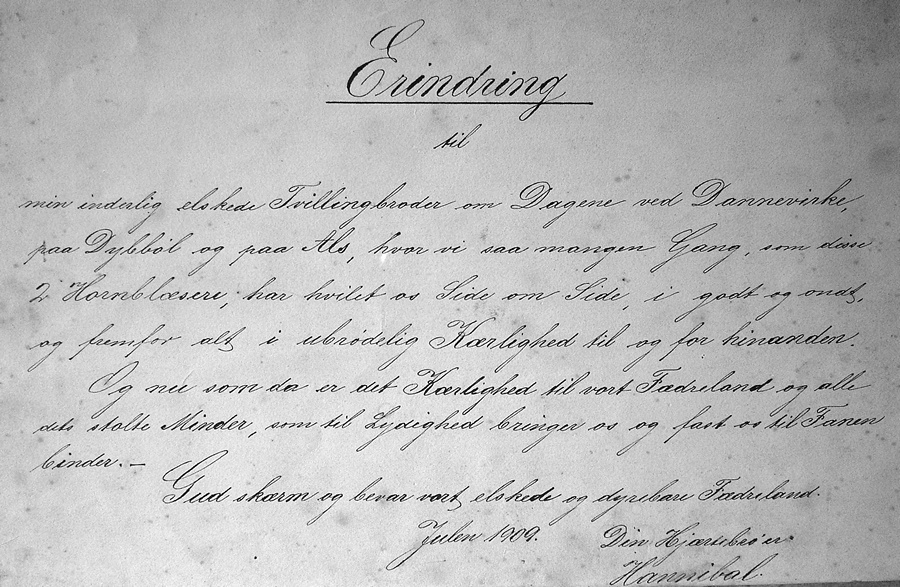 Erindring
til
min inderlig elskede Tvillingbroder om Dagene ved Dannevirke,
paa Dybböl og paa Als, hvor vi saa mangen Gang, som disse
2 Hornblæsere, har hvilet os Side om Side, i godt og ondt,
og fremfor alt i ubrödelig Kærlighed til og for hinanden.
Og nu som da er det Kærlighed til vort Fædreland og alle
dets stolte Minder, som til Lydighed bringer os og fast os til Fanen
binder. —
Gud skærm og bevar vort elskede og dyrebare Fædreland.
Julen 1909.
Din Hjærtebroer
Hannibal.